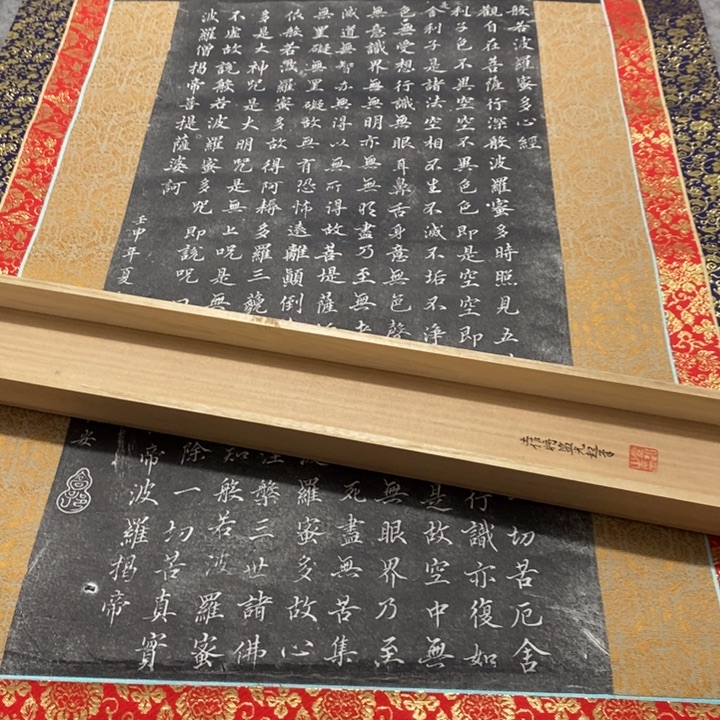 般若波羅蜜多心經
觀自在菩薩行深般波羅蜜多時照見五
切苦厄舍
利子色不異空空不異色色即是空空即
行識亦復如
是
舍利子是諸法空相不生不滅不垢不淨
是故空中無
色無受想行識無眼耳鼻舌身意無色聲
無眼界乃至
無意識界無無明亦無無明盡乃至無老
死盡無苦集
滅道無智亦無得以無所得故菩提薩
波羅蜜多故心
無罣礙無罣礙故無有恐怖遠離顛倒
涅槃三世諸佛
依般若波羅蜜多故得阿耨多羅三藐
知般若波羅蜜
多是大神咒是大明咒是無上咒是無
除一切苦真實
不虛故說般若波羅蜜多咒即說咒曰
帝波羅揭帝
波羅僧揭帝菩提薩婆訶
壬申年夏
安